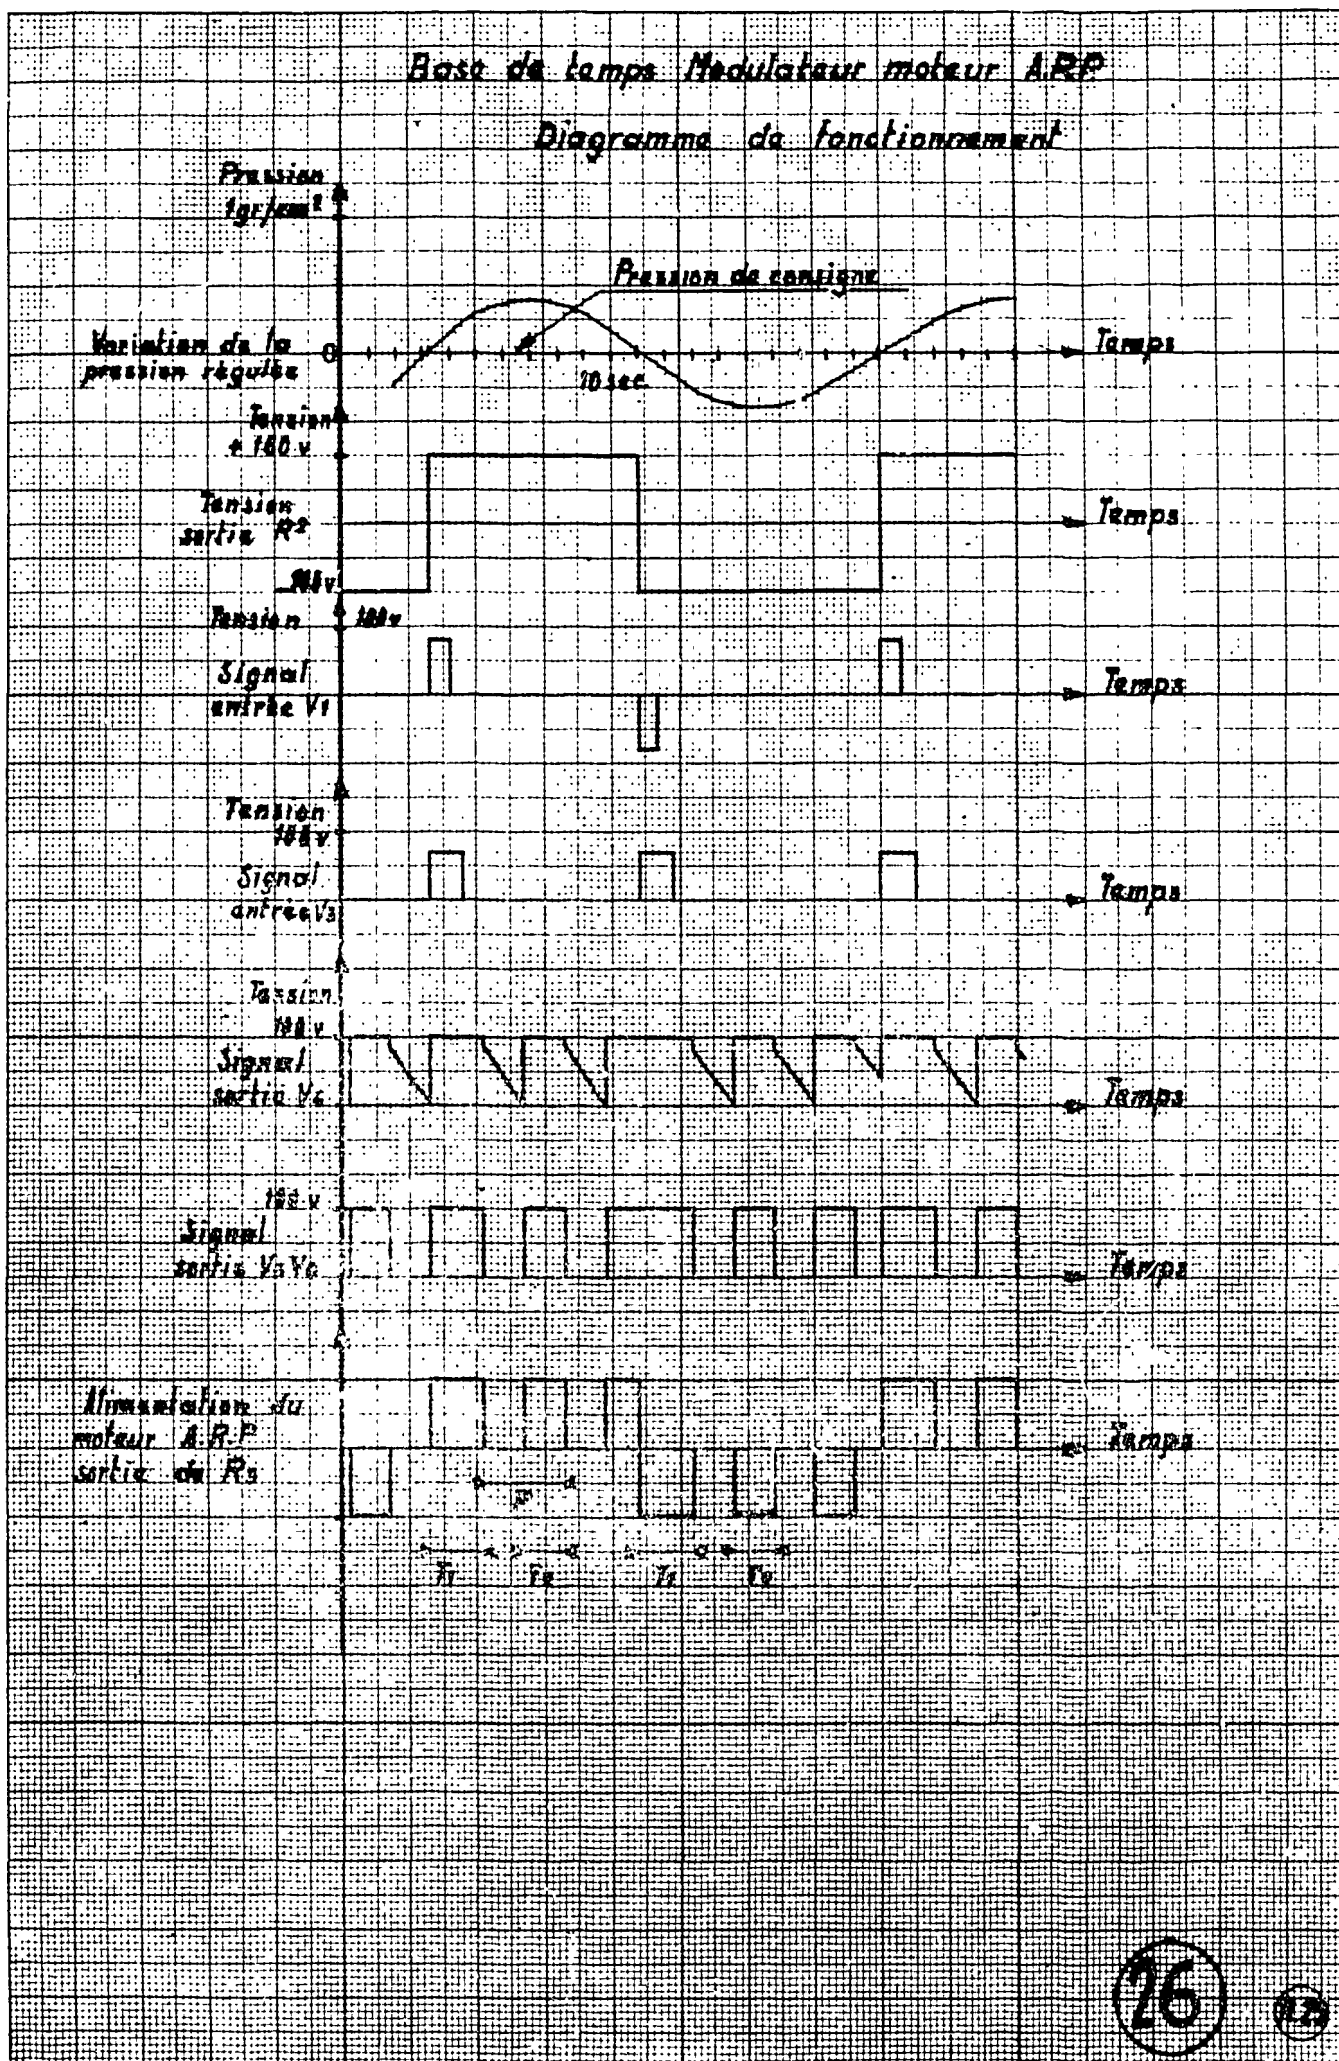 Base de temps Modulateur moteur A.R.P.
Diagramme de fonctionnement
Pression
1gr/cm²
Pression de consigne
Variation de la
pression régulée
0
10 sec
Temps
Tension
+ 160 v
Tension
sortie R2
Temps
Tension
100v
Signal
entrée V1
Temps
Tension
100 v
Signal
entrée V3
Temps
Tension
100 v
Signal
sortie
Temps
100 v
Signal
sortie
Temps
Alimentation du
moteur A.R.P
sortie de
Temps
T1
T1
26